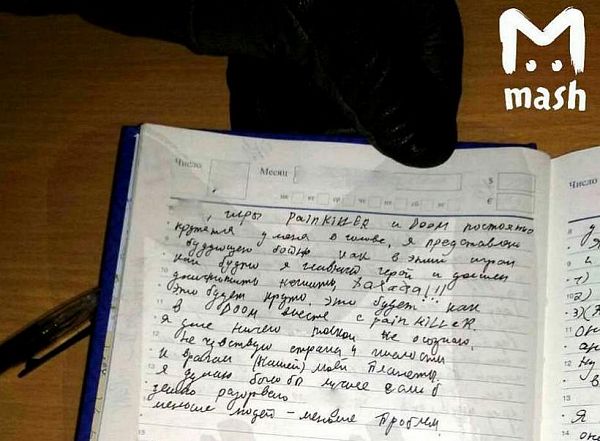 mash
Число
Месяц
$
€
пн вт ср чт пт сб вс
, игры PainKiLLER и DOOM постоянно
кружатся у меня в голове, я представляю
будующую бойню как в этих играх
как будто я главный герой и должен
уничтожить нечисть, Ха ха ха!!!
Это будет круто, это будет как
в DOOM вместе с PainKiLLER.
Я даже ничего плохого не ощущаю,
Не чувствую страха и жалости
К врагам (Нашей) моей Планеты,
Я думаю было бы лучше если б
землю разорвало
меньше людей – меньше Проблем
Число
8
9
10
11
12
13
14
15